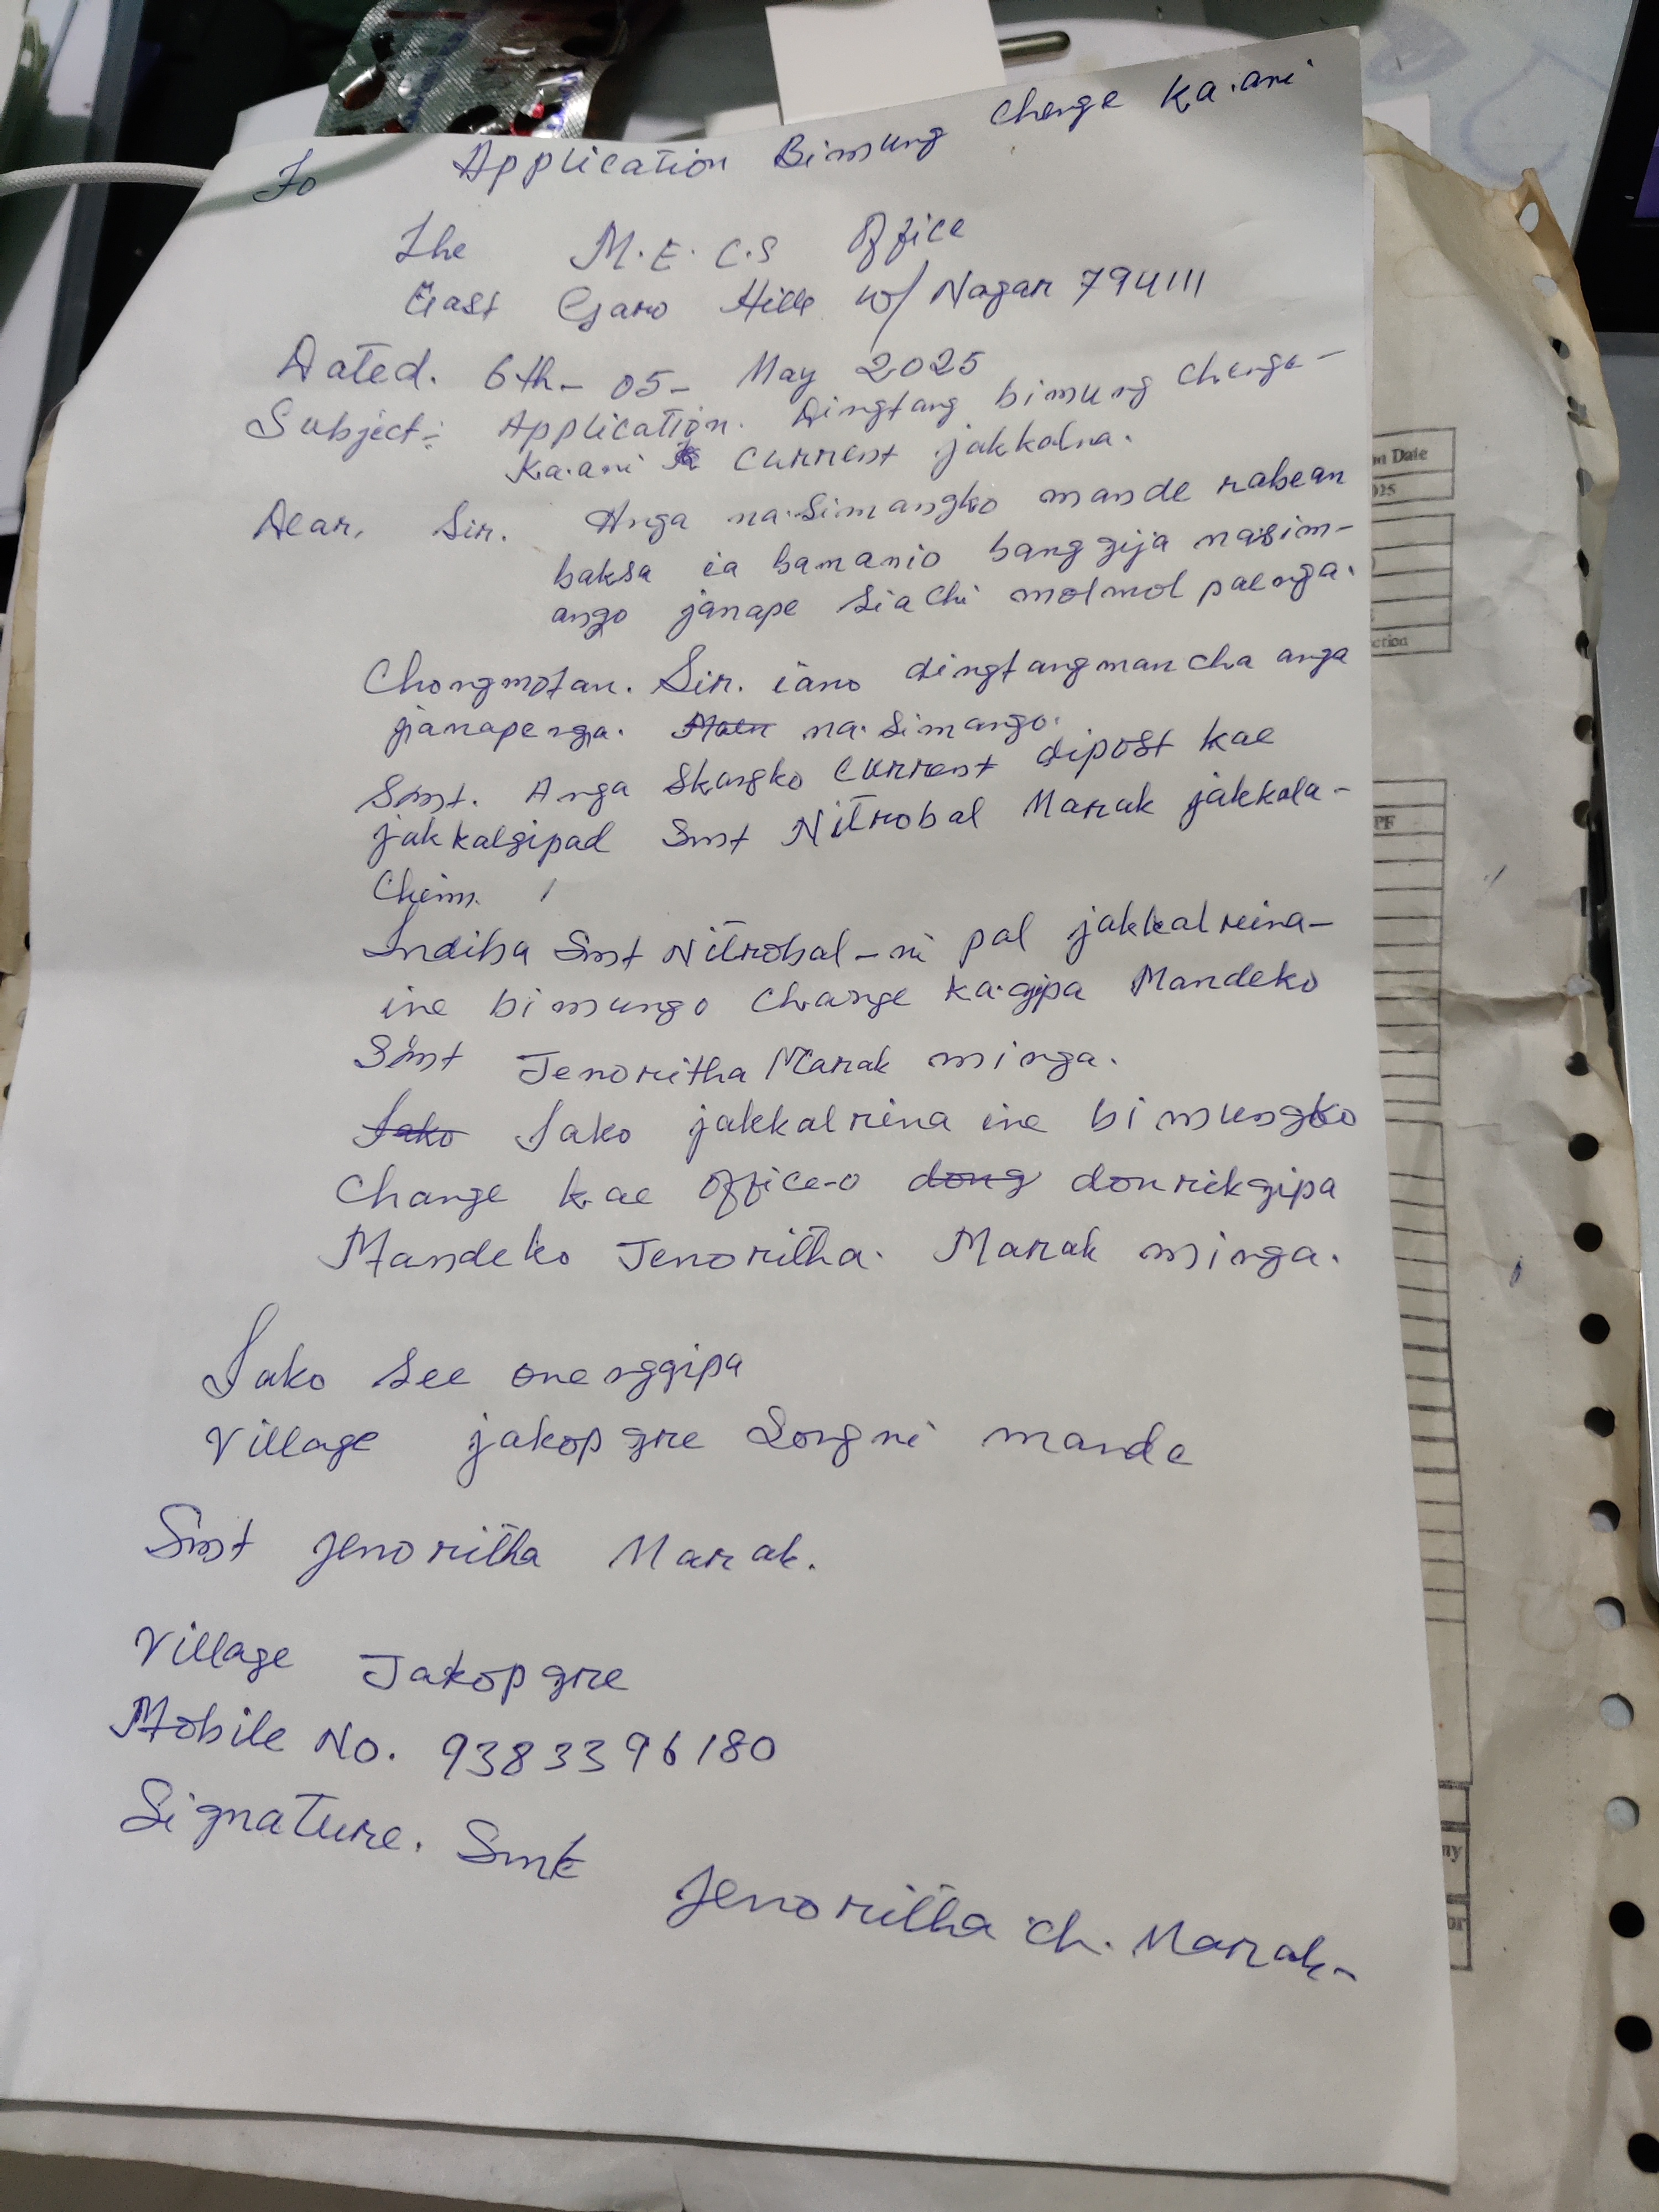 Application Bimung Change Ka·ani
To
The M.E.C.S Office
East Garo Hills W/Nagar 794111
Dated. 6th- 05- May 2025
Subject:- Application. Dingtang bimung Change-
Ka.ani current jakkalna.
Dear, Sir. Anga na·simangko mande rabean
baksa ia bamanio banggija na·sim-
ango janape Siachi molmol paenga.
Chongmotan. Sir. iano dingtangmancha anga
janapenga. na·simango.
Smt. Anga Skangko Current dipost kae
jakkalgipad Smt Nitrobal Marak jakkala-
Chim.
Indiba Smt Nitrobal-ni pal jakkalreina-
ine bimungo Change ka·gipa Mandeko
Smt Jenoritha Marak minga.
Iako Iako jakkalreina ine bimungko
Change kae Office-o dong donrikgipa
Mandeko Jenoritha. Marak minga.
Iako See onenggipa
Village jakopgre Songni mande
Smt Jenoritha Marak.
Village Jakopgre
Mobile No. 9383396180
Signature. Smt
Jenoritha Ch. Marak-
on Date
025
ction
PF
ny
or